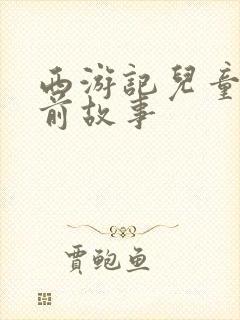 西游記兒童
前故事
賈鲍鱼